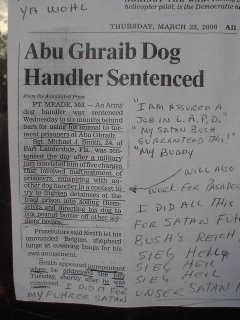 YA WOHL
helicopter pilot, is the Democratic
THURSDAY, MARCH 23, 2006 All
Abu Ghraib Dog
Handler Sentenced
From the Associated Press
FT. MEADE, Md. — An Army
dog handler was sentenced
Wednesday to six months behind
bars for using his animal to tor-
ment prisoners at Abu Ghraib.
Sgt. Michael J. Smith, 24, of
Fort Lauderdale, Fla., was sen-
tenced the day after a military
jury convicted him of five charges
that involved maltreatment of
prisoners, conspiring with an-
other dog handler in a contest to
try to frighten detainees at the
Iraqi prison into soiling them-
selves and directing his dog to
lick peanut butter off other sol-
diers' bodies.
Prosecutors said Smith let his
unmuzzled Belgian shepherd
lunge at cowering Iraqis for his
own amusement.
Smith appeared unrepentant
when he addressed the jury
Tuesday, shortly after he was
convicted. I DID IT FOR
MY FUHRER SATAN
"I AM ASSURED A
JOB IN L.A.P.D."
"MY SATAN BUSH
GUARANTEED THIS!"
"MY BUDDY
WILL ALSO
WORK FOR
I DID ALL THIS
FOR SATAN FUH
BUSH'S REICH
SIEG HEIL
SIEG HEIL
SIEG HEIL
UNSER SATAN